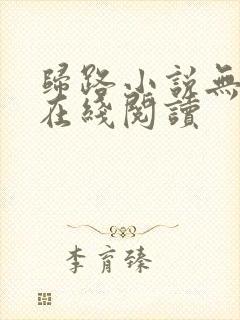 歸路小說無
在綫閱讀
李育臻